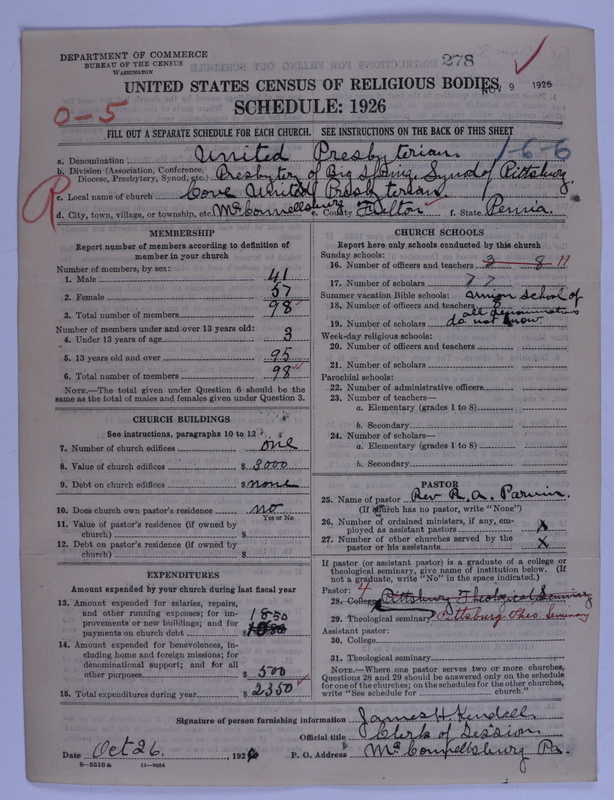 DEPARTMENT OF COMMERCE
BUREAU OF THE CENSUS
WASHINGTON
278
NOV 9 1926
UNITED STATES CENSUS OF RELIGIOUS BODIES
SCHEDULE: 1926
0-5
FILL OUT A SEPARATE SCHEDULE FOR EACH CHURCH. SEE INSTRUCTIONS ON THE BACK OF THIS SHEET
1-6-6
R
a. Denomination United Presbyterian
b. Division (Association, Conference, Diocese, Presbytery, Synod, etc.) Presbytery of Big Spring, Synod of Pittsburg
c. Local name of church Cove United Presbyterian
d. City, town, village, or township, etc. McConnellsburg e. County Fulton f. State Penna.
MEMBERSHIP
Report number of members according to definition of
member in your church
Number of members, by sex:
1. Male 41
2. Female 57
3. Total number of members 98
Number of members under and over 13 years old:
4. Under 13 years of age 3
5. 13 years old and over 95
6. Total number of members 98
NOTE.—The total given under Question 6 should be the
same as the total of males and females given under Question 3.
CHURCH BUILDINGS
See instructions, paragraphs 10 to 12
7. Number of church edifices one
8. Value of church edifices $ 3000
9. Debt on church edifices $ none
10. Does church own pastor's residence no
Yes or No
11. Value of pastor's residence (if owned by
church) $
12. Debt on pastor's residence (if owned by
church) $
EXPENDITURES
Amount expended by your church during last fiscal year
13. Amount expended for salaries, repairs,
and other running expenses; for im-
provements or new buildings; and for
payments on church debt 1850
14. Amount expended for benevolences, in-
cluding home and foreign missions; for
denominational support; and for all
other purposes $ 500
15. Total expenditures during year $ 2350
CHURCH SCHOOLS
Report here only schools conducted by this church
Sunday schools:
16. Number of officers and teachers 3 8 11
17. Number of scholars 77
Summer vacation Bible schools: union school of
18. Number of officers and teachers all denominations
19. Number of scholars do not know
Week-day religious schools:
20. Number of officers and teachers
21. Number of scholars
Parochial schools:
22. Number of administrative officers
23. Number of teachers—
a. Elementary (grades 1 to 8)
b. Secondary
24. Number of scholars—
a. Elementary (grades 1 to 8)
b. Secondary
PASTOR
25. Name of pastor Rev R. A. Parwin.
(If church has no pastor, write "None")
26. Number of ordained ministers, if any, em-
ployed as assistant pastors x
27. Number of other churches served by the
pastor or his assistants x
If pastor (or assistant pastor) is a graduate of a college or
theological seminary, give name of institution below. (If
not a graduate, write "No" in the space indicated.)
Pastor: 4
28. College Pittsburg Theological Seminary
29. Theological seminary Pittsburg Theo. Seminary
Assistant pastor:
30. College
31. Theological seminary
NOTE.—Where one pastor serves two or more churches,
Questions 28 and 29 should be answered only on the schedule
for one of the churches; on the schedules for the other churches,
write "See schedule for church."
Signature of person furnishing information James H. Kendall
Official title Clerk of Session
Date Oct 26, 1926 P. O. Address McConnellsburg Pa.
8-5518a 11-9664